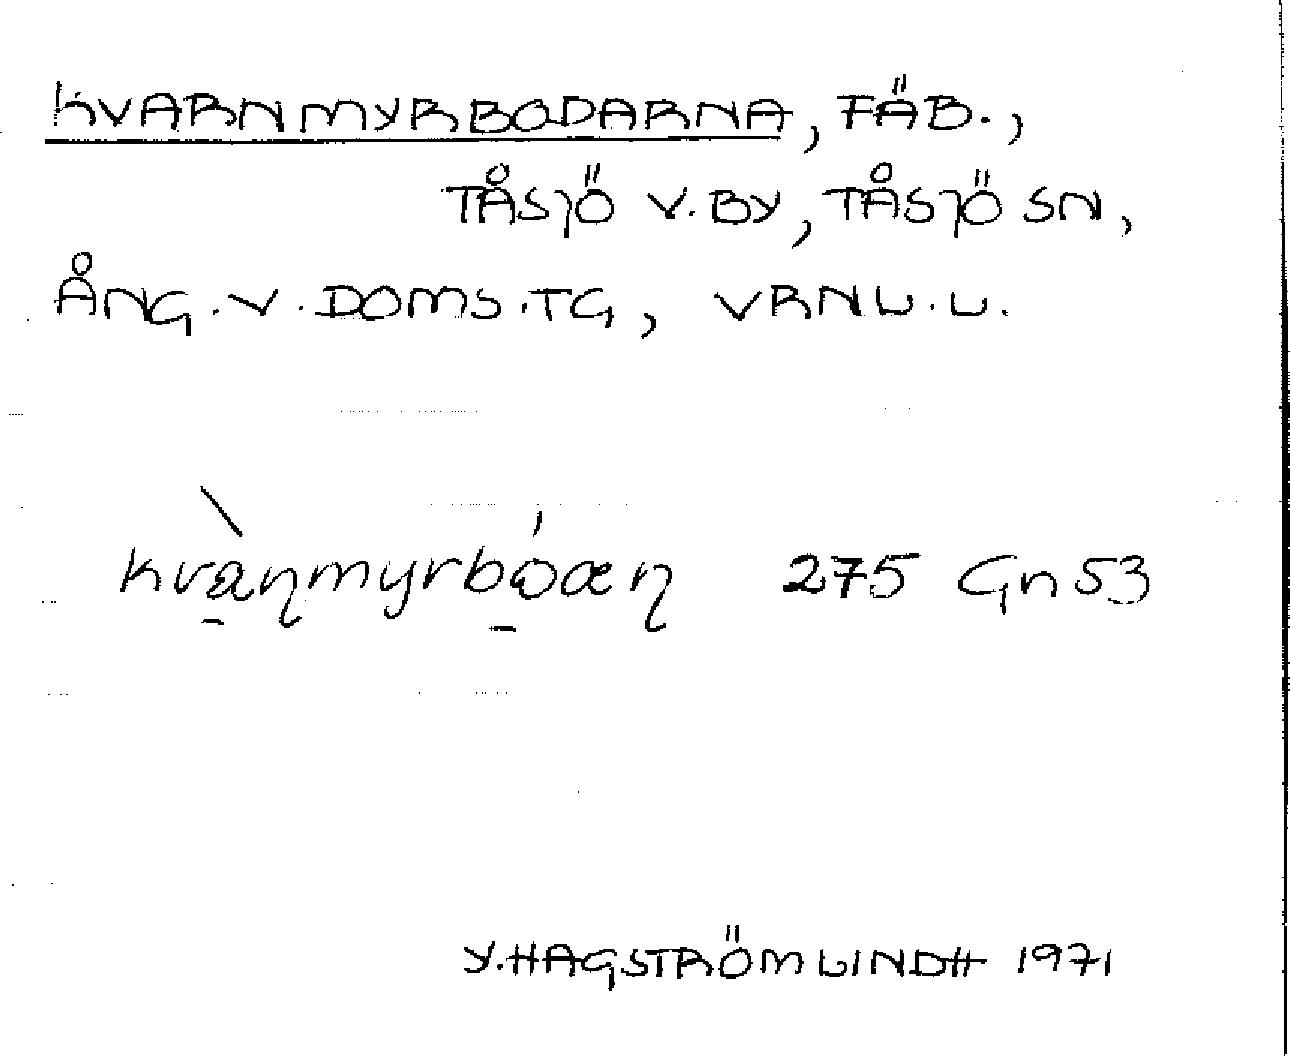 KVARNMYRBODARNA, FÄB.,
TÅSJÖ V. BY, TÅSJÖ SN,
ÅNG. V. DOMS. TG, VRNL. L.
275 Gn 53
Y. HAGSTRÖM LINDH 1971